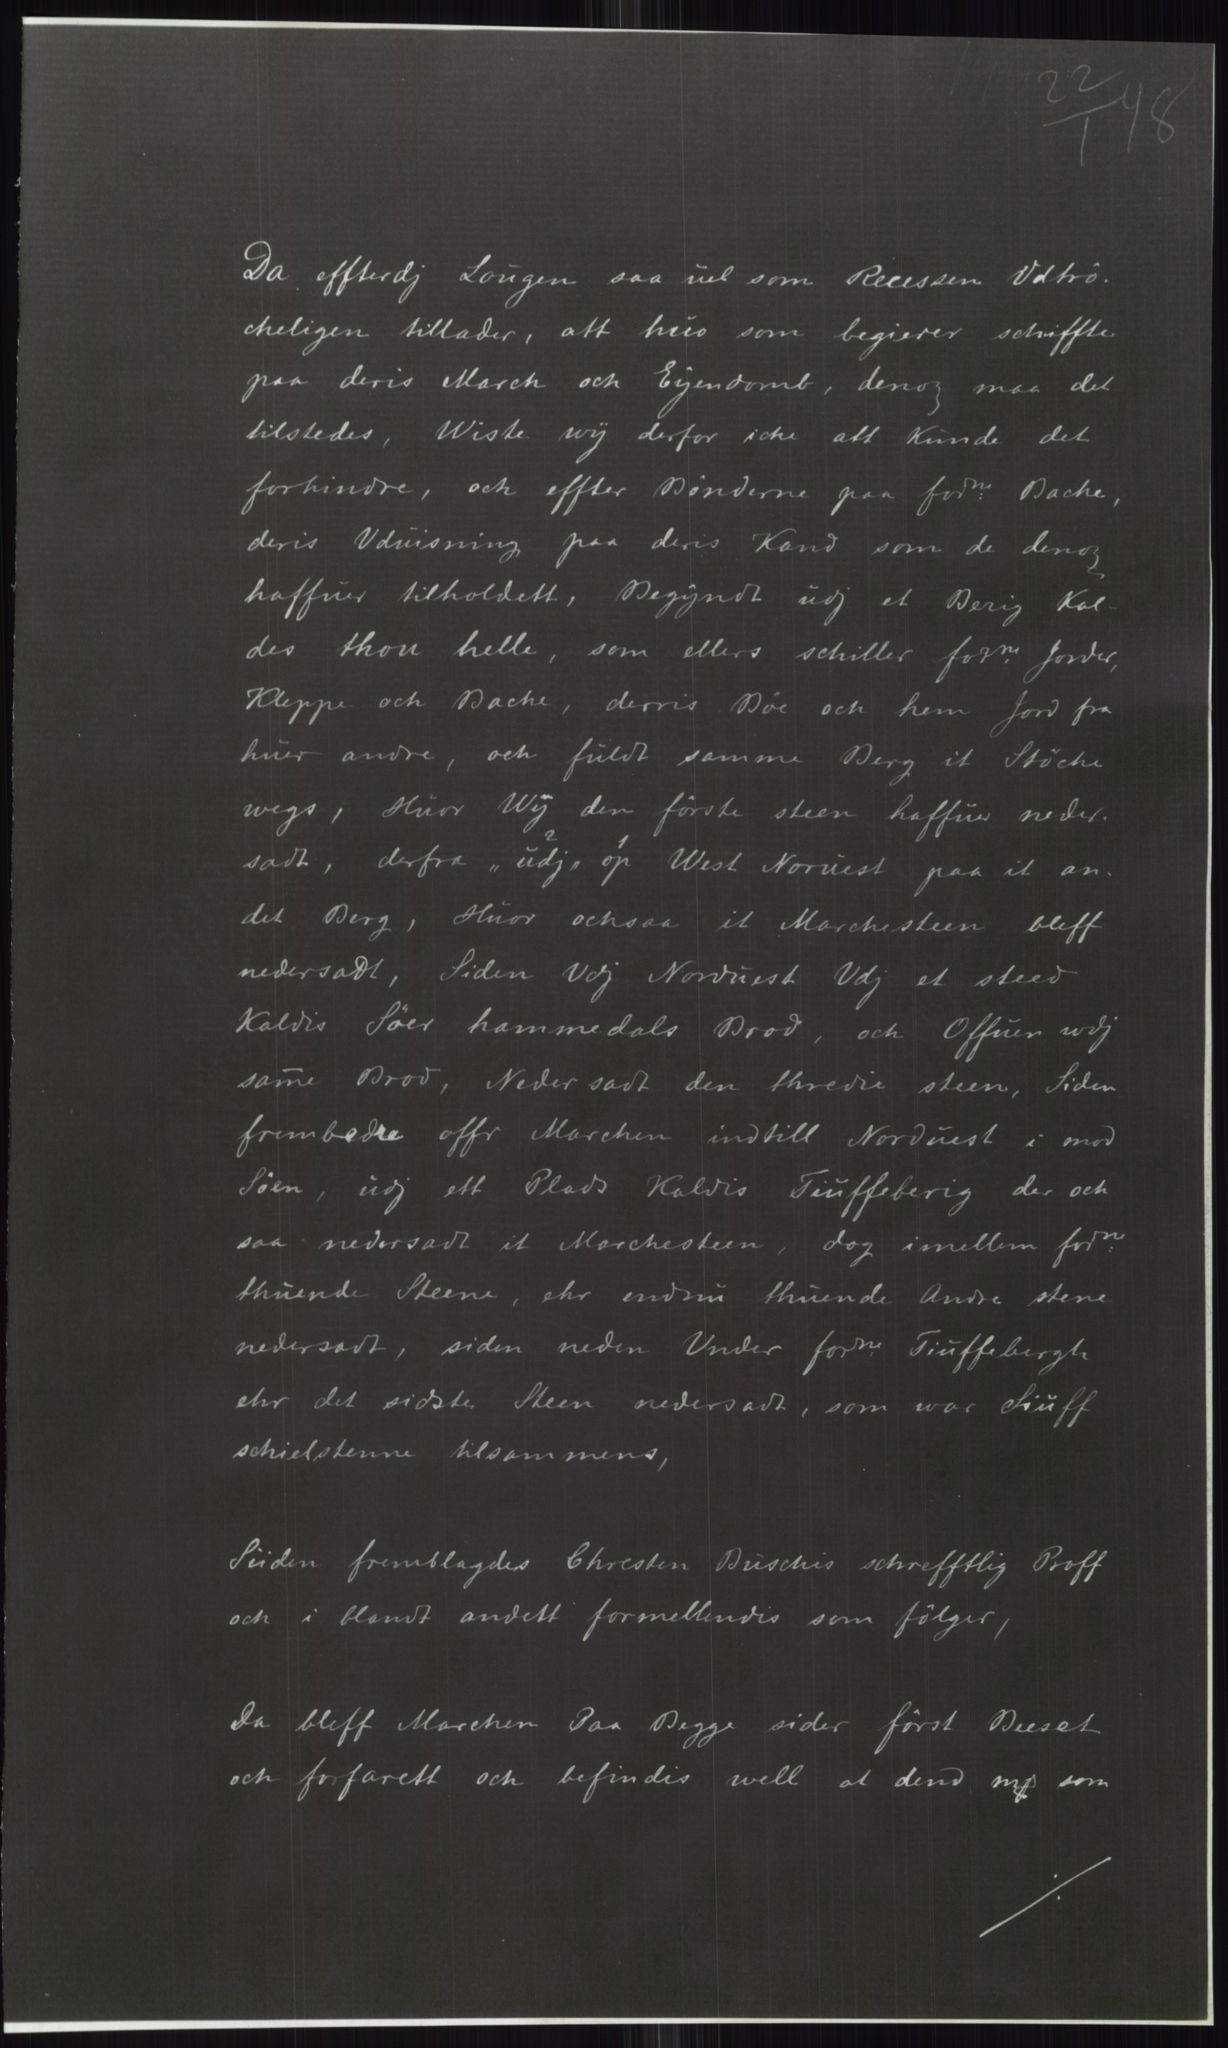 22/1 48
Da effterdj Lougen saa uel som Recessen Vdtrö-
cheligen tillader, att huo som begierer schiffte
paa deris March och Eÿendomb, denoz maa det
tilstedes, Wiste wÿ derfor iche att Kunde det
forhindre, och effter Bönderne paa fodne: Bache,
deris Vduisning paa deris Kand som de denoz
haffuer tilholdett, Begÿndt udj et Berig Kal-
des thou helle, som ellers schiller forne: Jorder,
Kleppe och Bache, derris Böe och hem Jord fra
huer andre, och fuldt samme Berg it Stöche
wegs, Huor Wÿ den förste steen haffuer neder-
sadt, derfra "udj" 2 op 1 West Noruest paa it an-
det Berg, Huor ochsaa it Marchesteen bleff
nedersadt, Siden Vdj Norduest Vdj et steed
Kaldis Söer hammedals Brod, och Offuen wdj
sam̄e Brod, Neder sadt den thredie steen, Siden
frembedre offr Marchen indtill Norduest i mod
Söen, udj ett Plads Kaldis Tiuffeberig der och
saa nedersadt it Marchesteen, dog imellem fodne:
thuende Steene, ehr endnu thuende Andre stene
nedersadt, siden neden Vnder forne: Tiuffebergh
ehr det sidste Steen nedersadt, som war Siuff
schielstenne tilsammens,
Siiden fremblagdes Chresten Buschis schrefftlig Proff
och i blandt andett formellendis som fölger,
Da bleff Marchen Paa Begge sider först Beeset
och forfarett och befindis well at dend som
./.